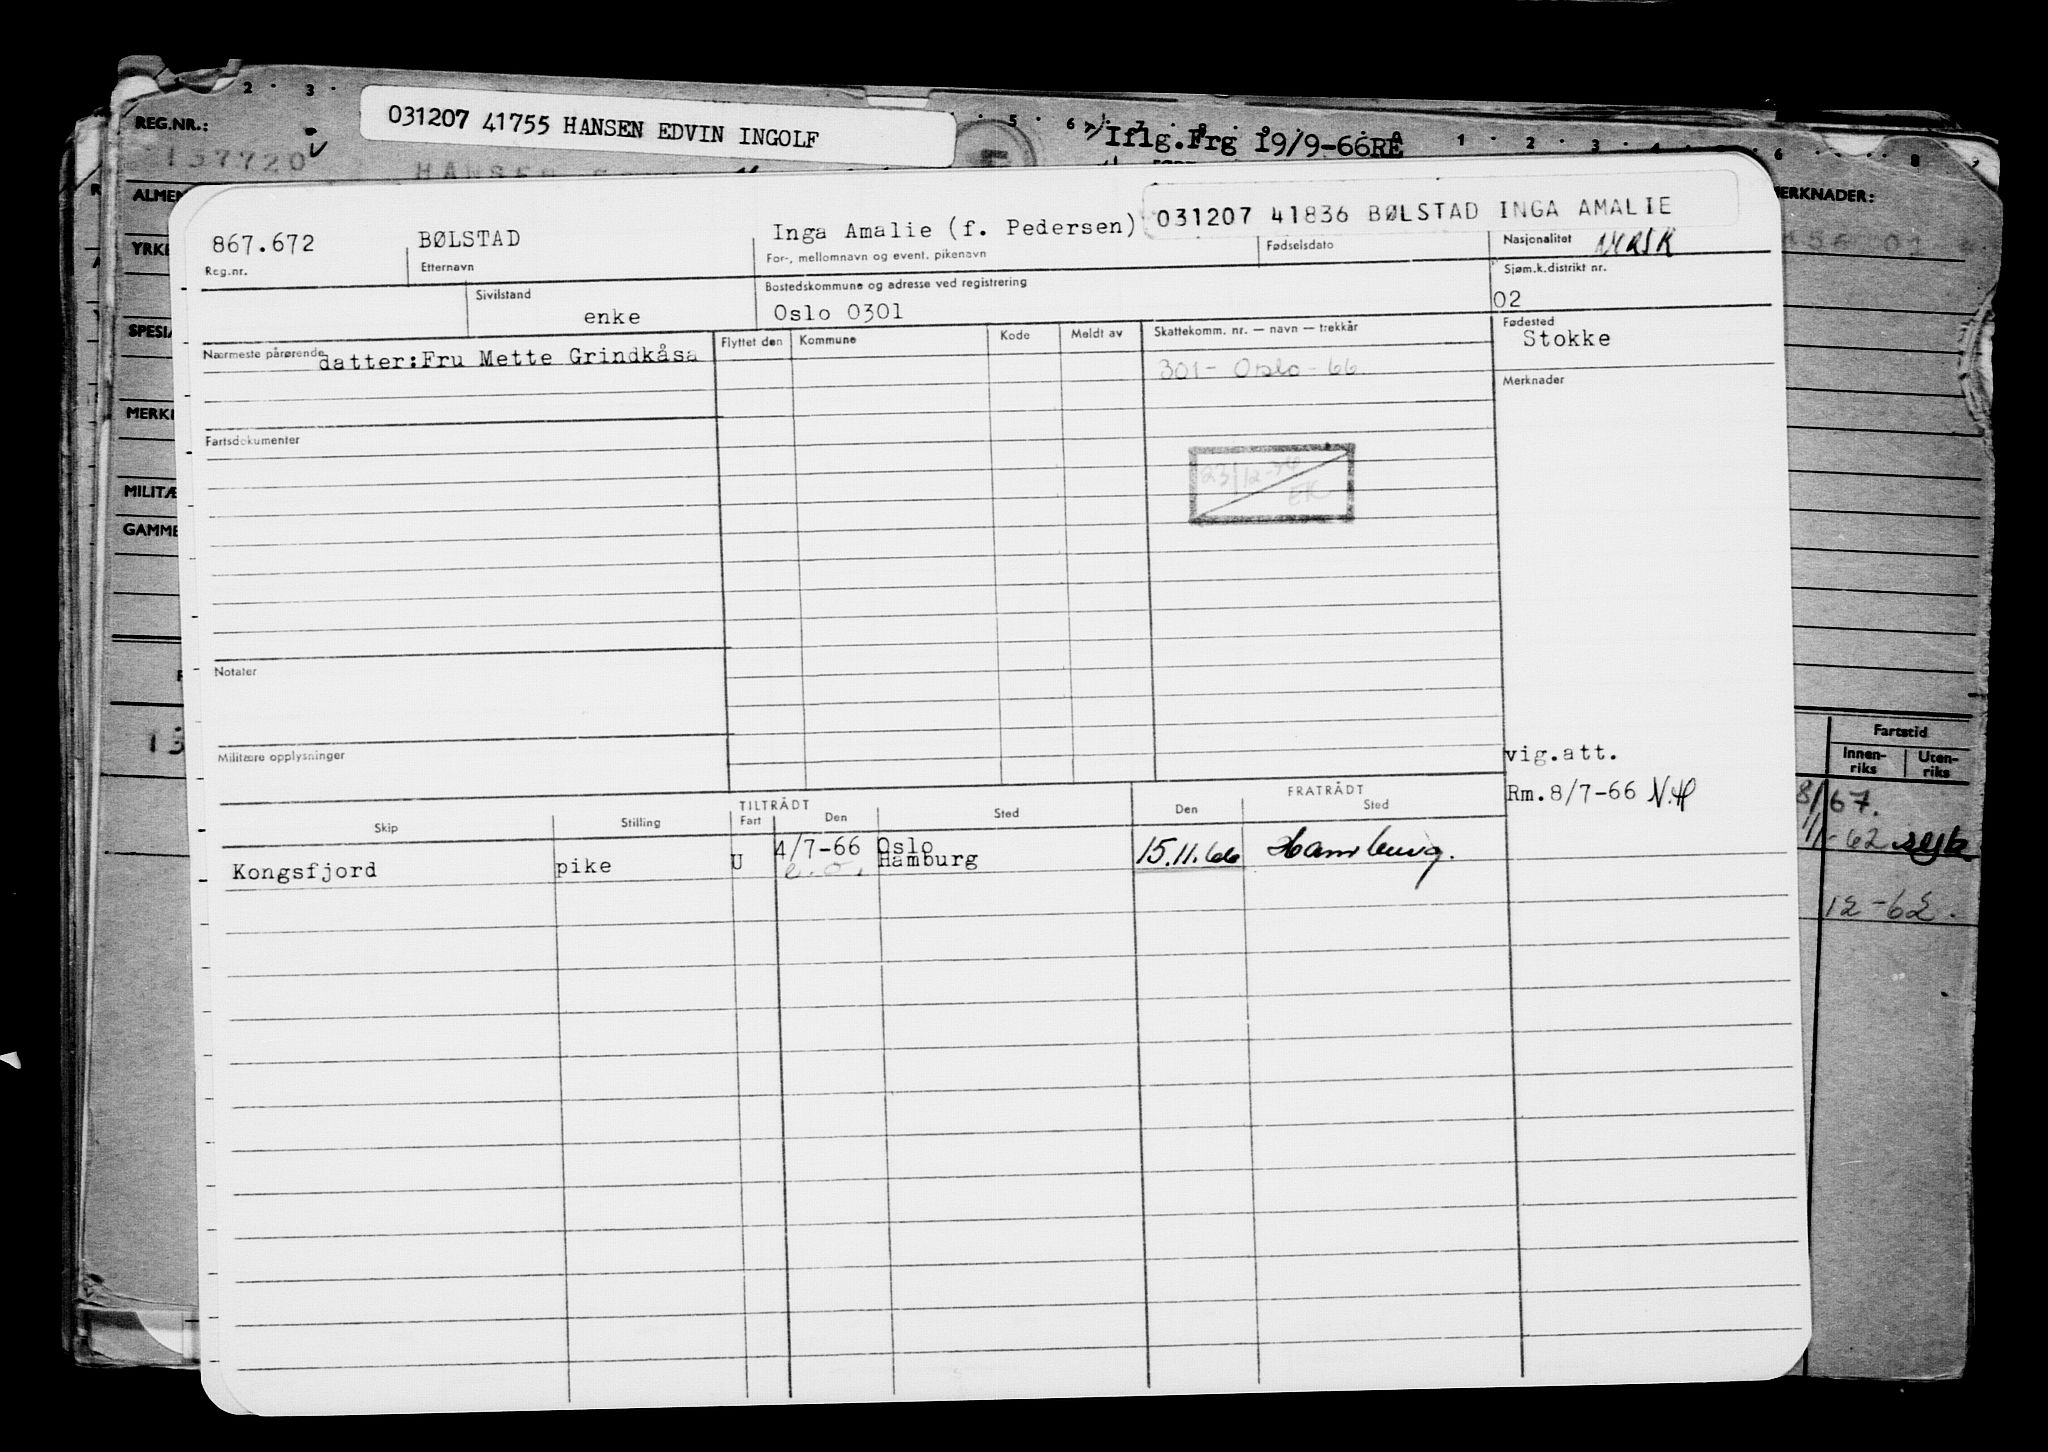 2 · 3 ·
REG.NR.:
031207 41755 HANSEN EDVIN INGOLF
· 5 · 6 · 7 · 8 · 9 · 1 · 2 · 3 · 4 · 5 · 6 · · 8
Iflg.Frg 19/9-66RÅ
137720
HANSEN
ALMEN
MERKNADER:
YRKE
SPESIA
MERK
MILITÆ
GAMME
031207 41836 BØLSTAD INGA AMALIE
867.672 BØLSTAD Inga Amalie (f. Pedersen)
Reg.nr. Etternavn For-, mellomnavn og event. pikenavn Fødselsdato Nasjonalitet NORSK
Sivilstand Bostedskommune og adresse ved registrering Sjøm.k.distrikt nr.
enke Oslo 0301 02
Nærmeste pårørende Flyttet den Kommune Kode Meldt av Skattekomm. nr. — navn — trekkår Fødested
datter:Fru Mette Grindkåsa Stokke
301- Oslo - 66
Merknader
Fartsdokumenter
EK
Notater
Militære opplysninger
vig.att.
Rm.8/7-66 N.H
TILTRÅDT FRATRÅDT
Skip Stilling Fart Den Sted Den Sted
Kongsfjord pike U 4/7-66 Oslo 15.11.66 Hamburg.
e.o. Hamburg
Fartstid
Innen-riks Uten-riks
67.
-62
12-62.
13